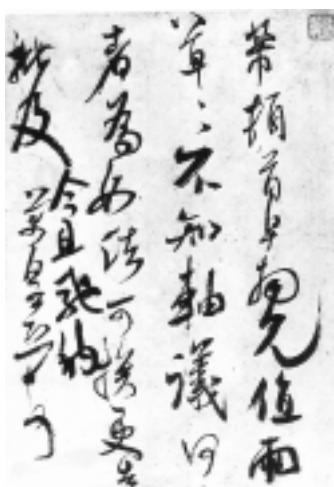 芾頓首早見值雨
草〻不知軸議何
者為如法可換更告
批及今且馳納
芾皇恐